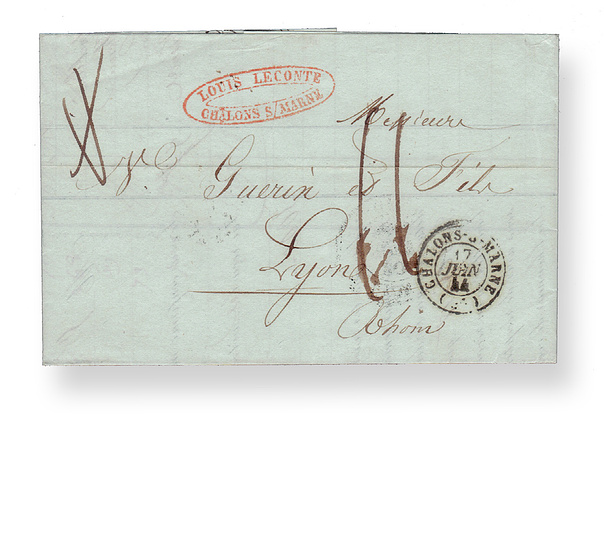 LOUIS LECONTE
CHALONS S/MARNE
Messieurs
Guerin et Fils
Lyon
Rhone
CHALONS-S-MARNE
17
JUIN
44